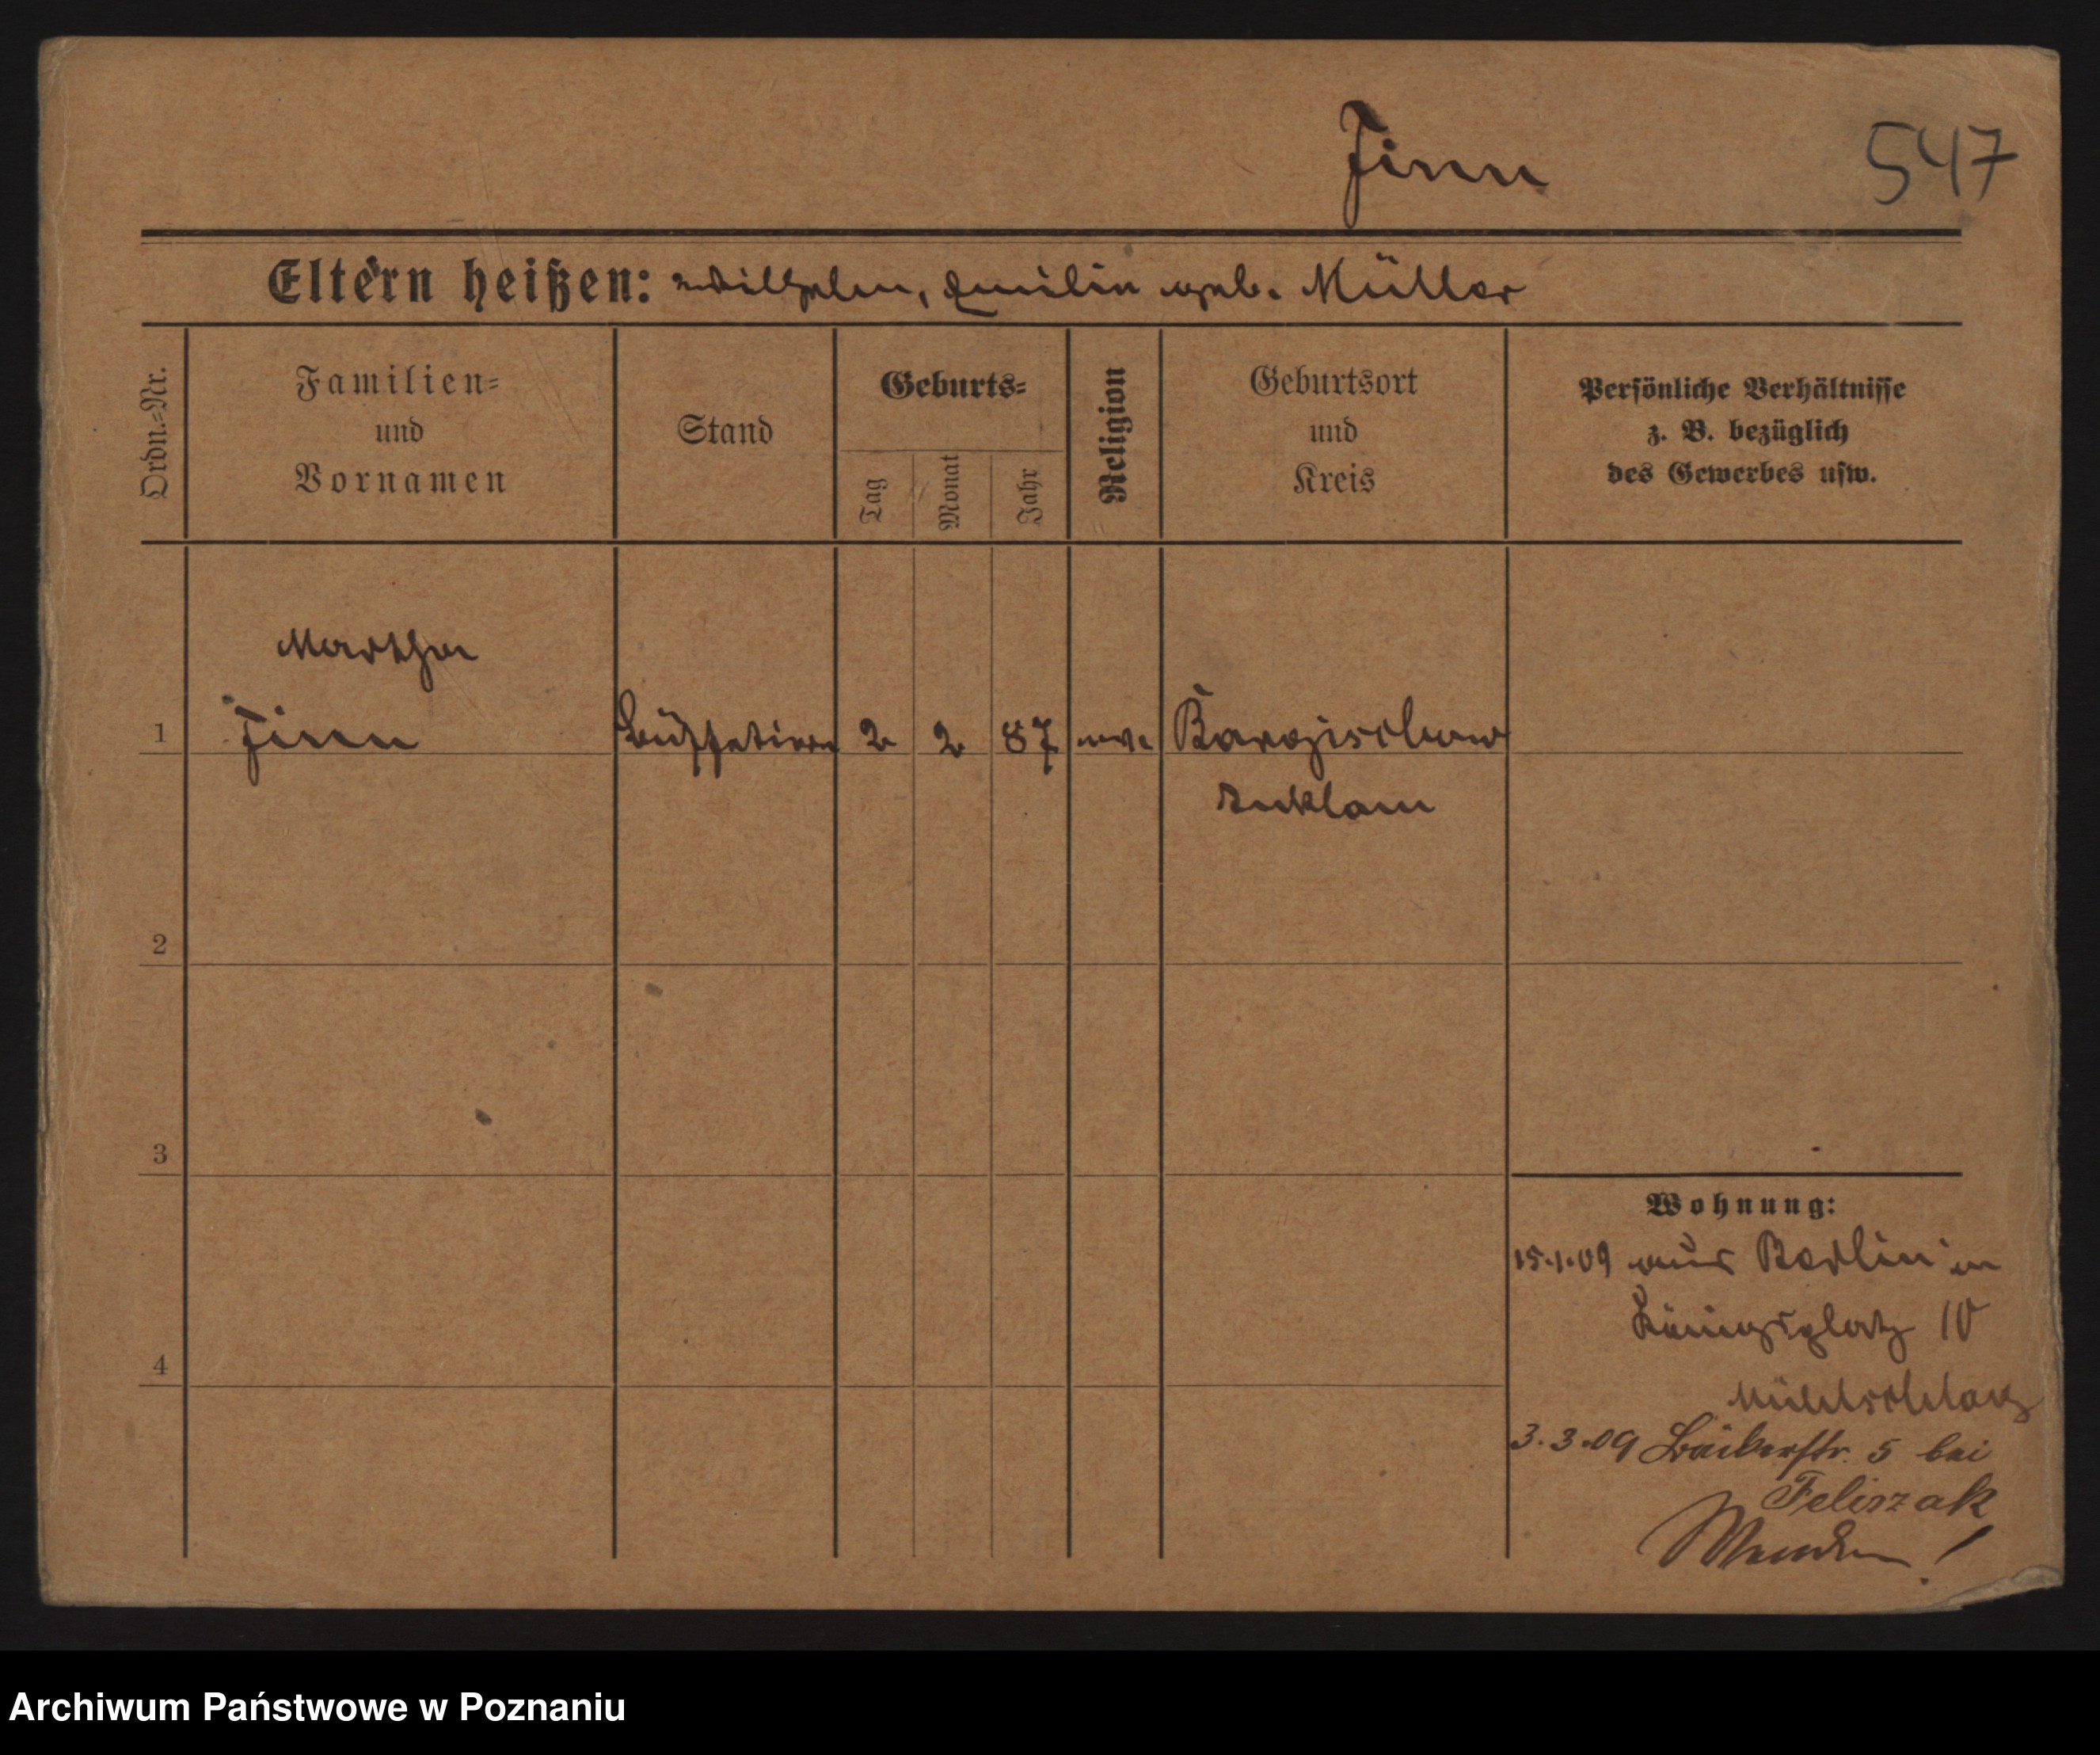 Finn
547
Eltern heißen: Wilhelm, Emilie geb. Müller
Ordn.=Nr.
Familien=
und
Vornamen
Stand
Geburts=
Tag
Monat
Jahr
Religion
Geburtsort
und
Kreis
Persönliche Verhältnisse
z. B. bezüglich
des Gewerbes usw.
Martha
1 Finn 2 2 87 ev. Bargischow
Anklam
2
3
4
Wohnung:
15.1.09 aus Berlin in
Königsplatz 10
3.3.09 Bäckerstr. 5 bei
Feliszak
Wenden!
Archiwum Państwowe w Poznaniu